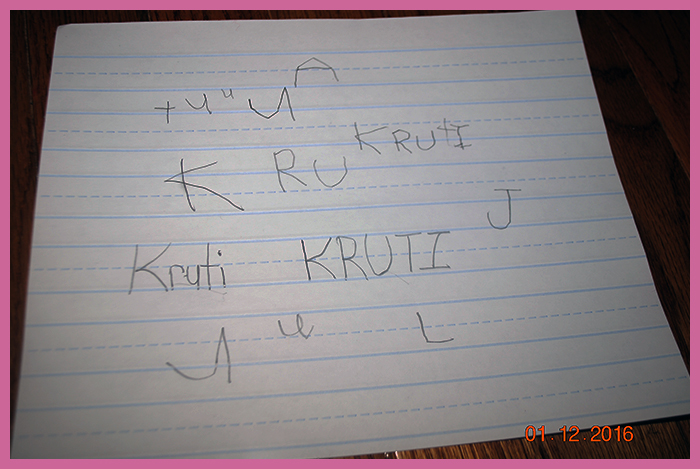 + u u
K RU KRUTI
J
Kruti KRUTI
u L
01.12.2016